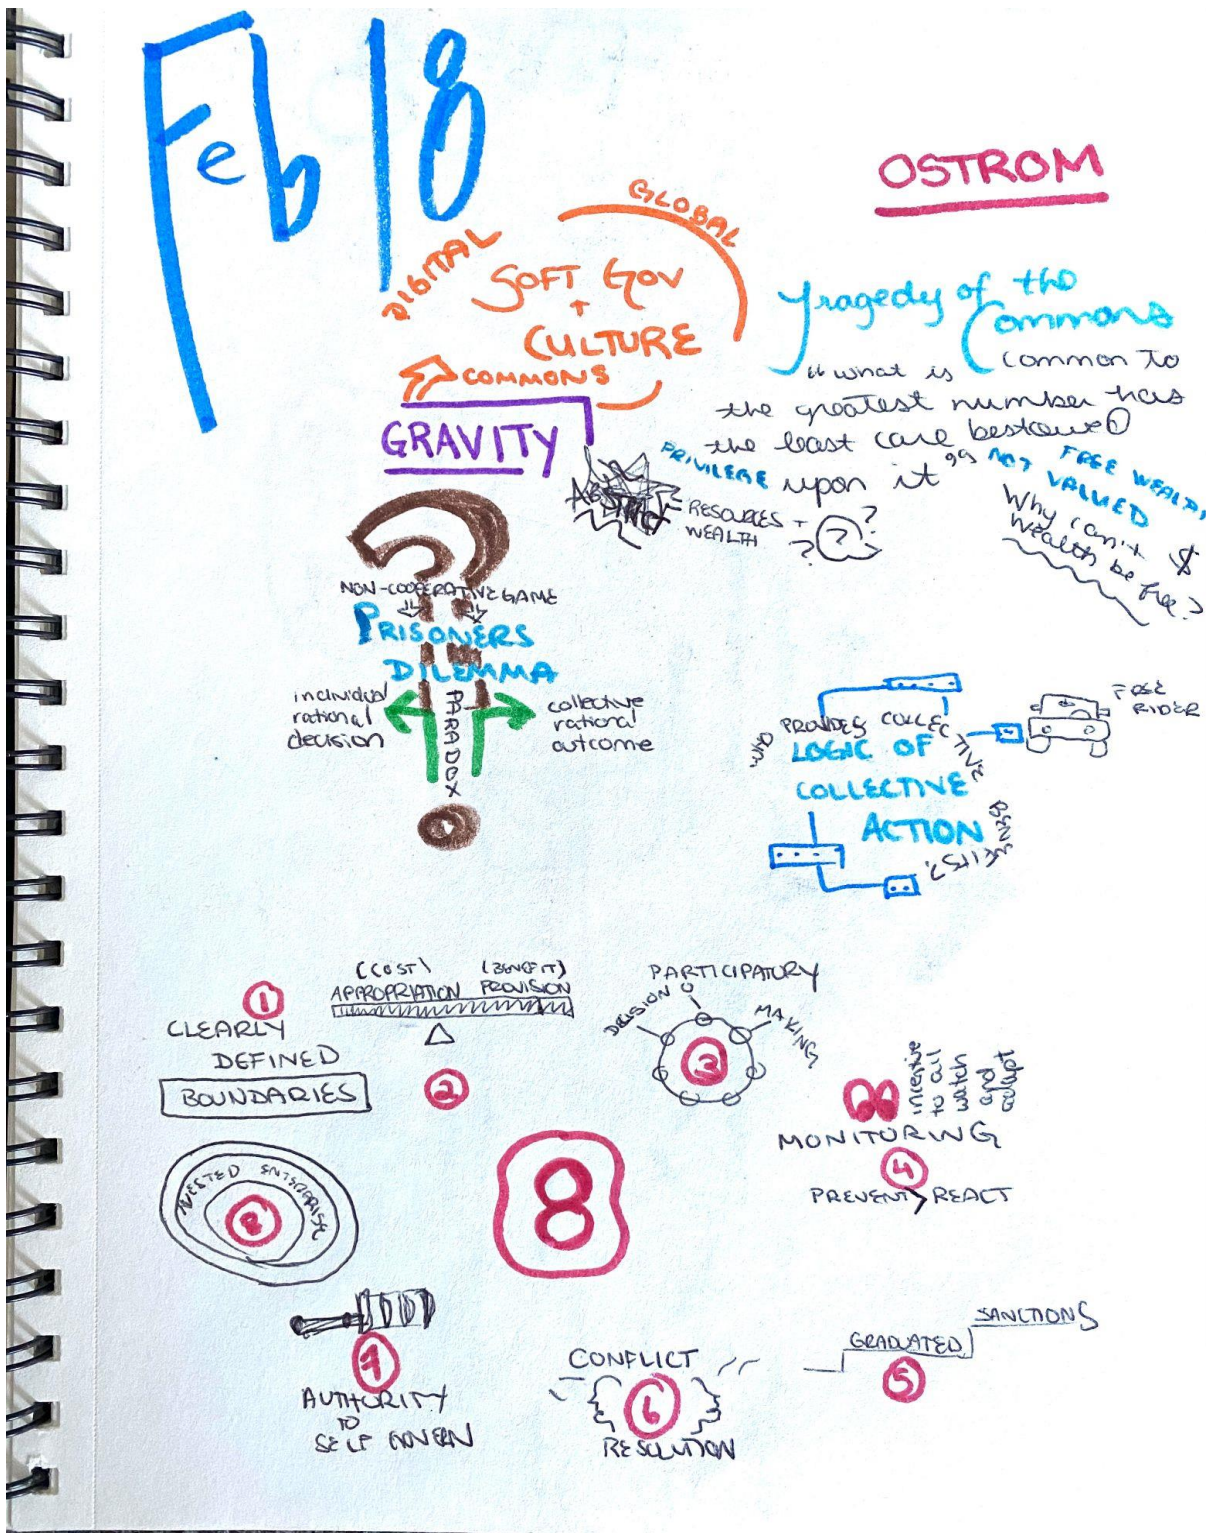 Feb 18
OSTROM
GLOBAL
DIGITAL
SOFT GOV
+
CULTURE
COMMONS
GRAVITY
Tragedy of the
Commons
"what is common to
the greatest number has
the least care bestowed
upon it"
PRIVILEGE
FREE WEALTH
NOT VALUED
Why can't $
wealth be free?
RESOURCES +
WEALTH
? ? ?
NON-COOPERATIVE GAME
PRISONERS
DILEMMA
PARADOX
individual
rational
decision
collective
rational
outcome
WHO PROVIDES COLLECTIVE
BENEFITS?
LOGIC OF
COLLECTIVE
ACTION
FREE
RIDER
1
CLEARLY
DEFINED
BOUNDARIES
(COST) (BENEFIT)
APPROPRIATION PROVISION
2
PARTICIPATORY
DECISION MAKING
3
incentive
to all
watch
and
adapt
MONITORING
4
PREVENT > REACT
NESTED ENTERPRISE
8
8
7
AUTHORITY
TO
SELF GOVERN
CONFLICT
6
RESOLUTION
GRADUATED SANCTIONS
5